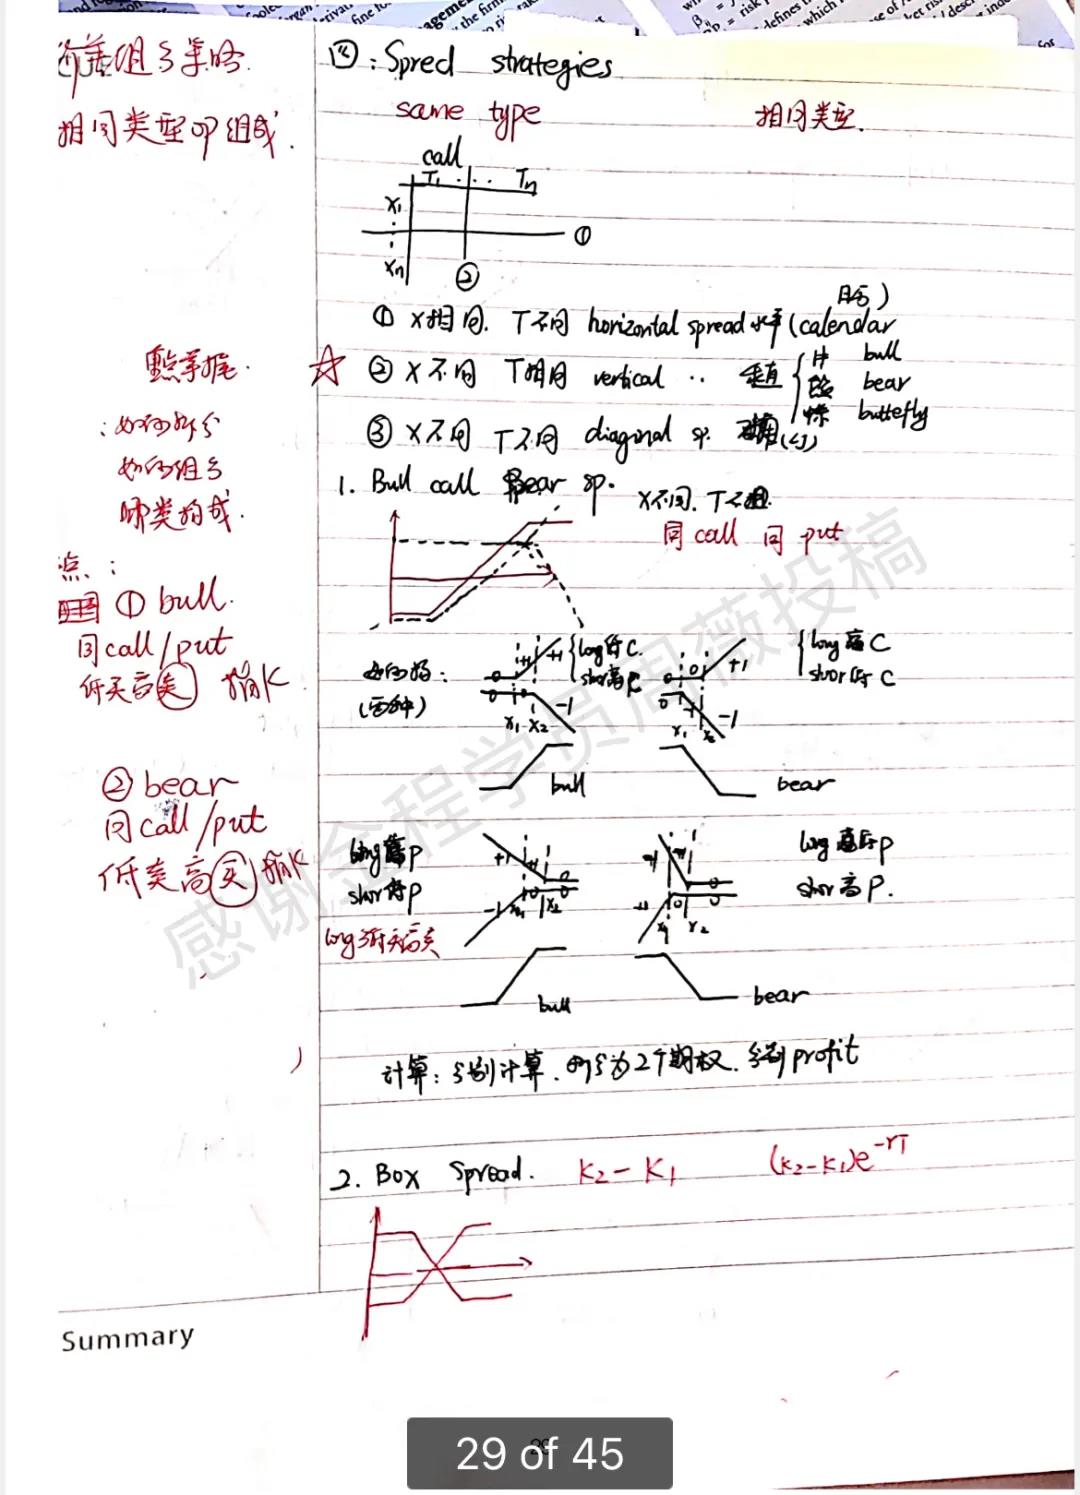 价差组合策略
相同类型op组成.
④: Spred strategies
same type
相同类型.
call
T₁ ... Tn
X₁
Xn
①
②
① X相同. T不同 horizontal spread 水平 (calendar 日历)
重点掌握.
☆ ② X不同 T相同 vertical .. 垂直 { 牛 bull
熊 bear
蝶 buttefly
③ X不同 T不同 diagonal sp. 对角(线)
: 如何拆分
如何组合
哪类构成.
1. Bull call Bear sp.
X不同. T不
同call 同 put
点:
① bull.
同call/put
低买高卖 指K
如何构:
(两种)
+1 +1
{ long 低 C.
shor高
0 0
-1
X₁ X₂
bull
+1
{ long 高 C
shor 低 C
-1
X₁ X₂
bear
② bear
同call/put
低卖高买 指K
long 高 p
shor 低 p
+1 +1
-1
X₂
bull
long 低 p
shor 高 P.
X₁ X₂
bear
计算: 分别计算. 拆分为2个期权. 分别 profit
2. Box Spread. K₂-K₁ (K₂-K₁)e^-rT
Summary
29 of 45
感谢金程学员周薇投稿